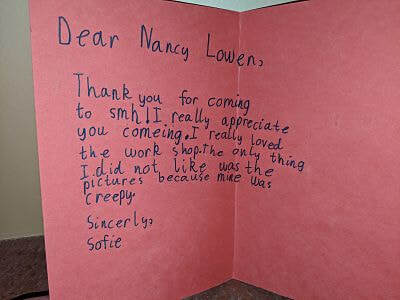 Dear Nancy Lowen,
Thank you for coming
to smh! I really appreciate
you comeing. I really loved
the work shop. The only thing
I did not like was the
pictures because mine was
creepy.
Sincerly,
Sofie